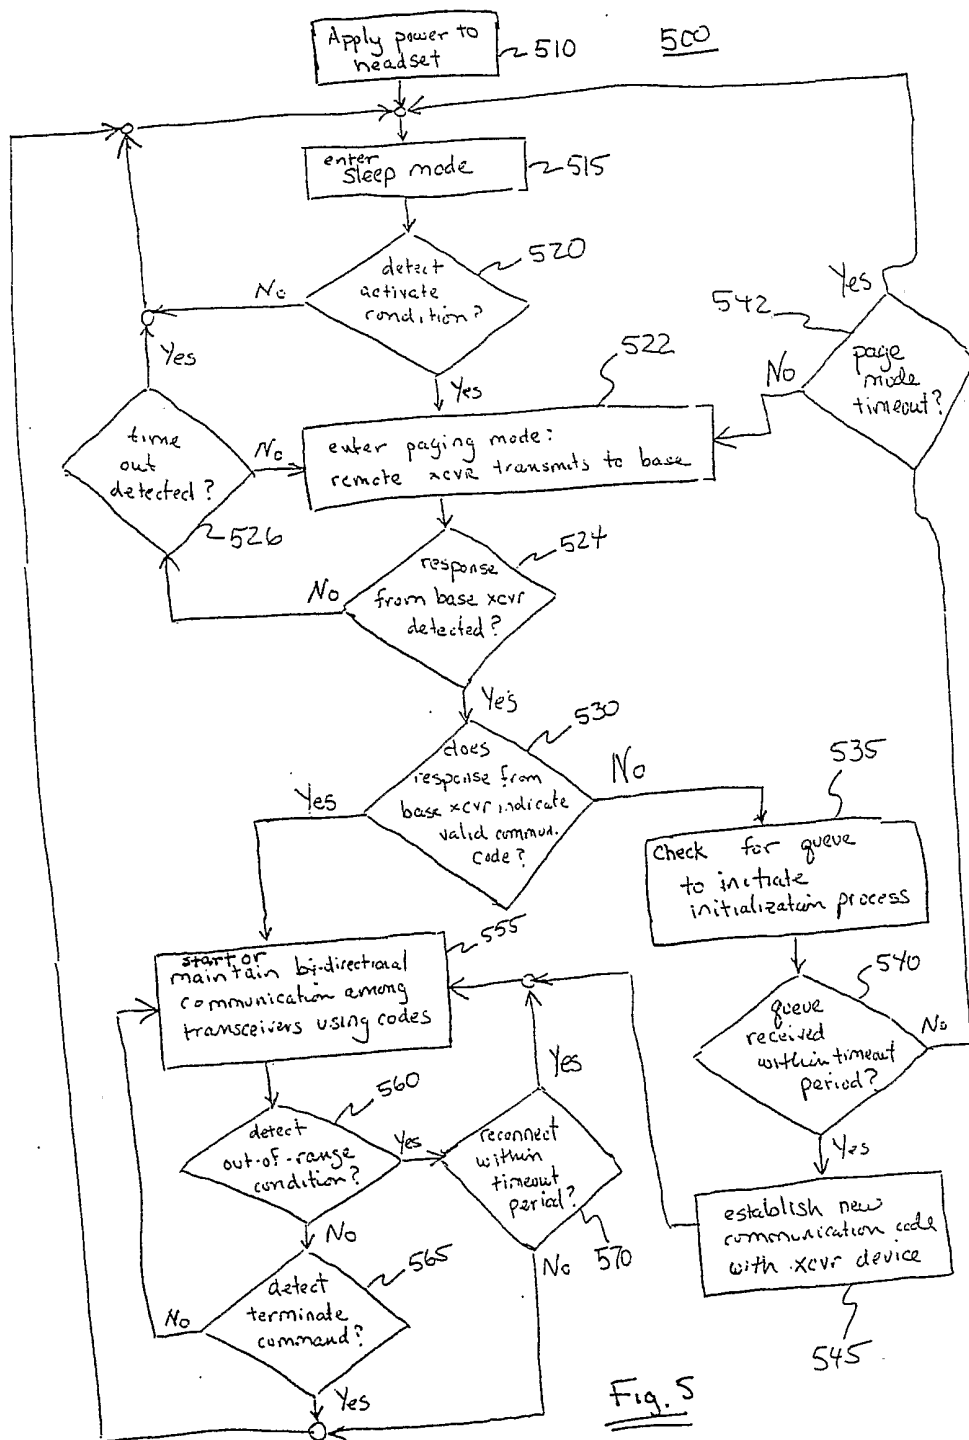 Apply power to
headset
510
500
enter
sleep mode
515
detect
activate
condition?
520
No
Yes
542
Yes
page
mode
timeout?
No
522
enter paging mode:
remote xcvr transmits to base
Yes
time
out
detected?
No
526
524
response
from base xcvr
detected?
No
Yes
530
does
response from
base xcvr indicate
valid commun.
code?
Yes
No
535
Check for queue
to initiate
initialization process
555
start or
maintain bi-directional
communication among
transceivers using codes
540
queue
received
within timeout
period?
No
Yes
560
detect
out-of-range
condition?
Yes
No
reconnect
within
timeout
period?
Yes
No
570
establish new
communication code
with xcvr device
545
565
detect
terminate
command?
No
Yes
Fig. 5